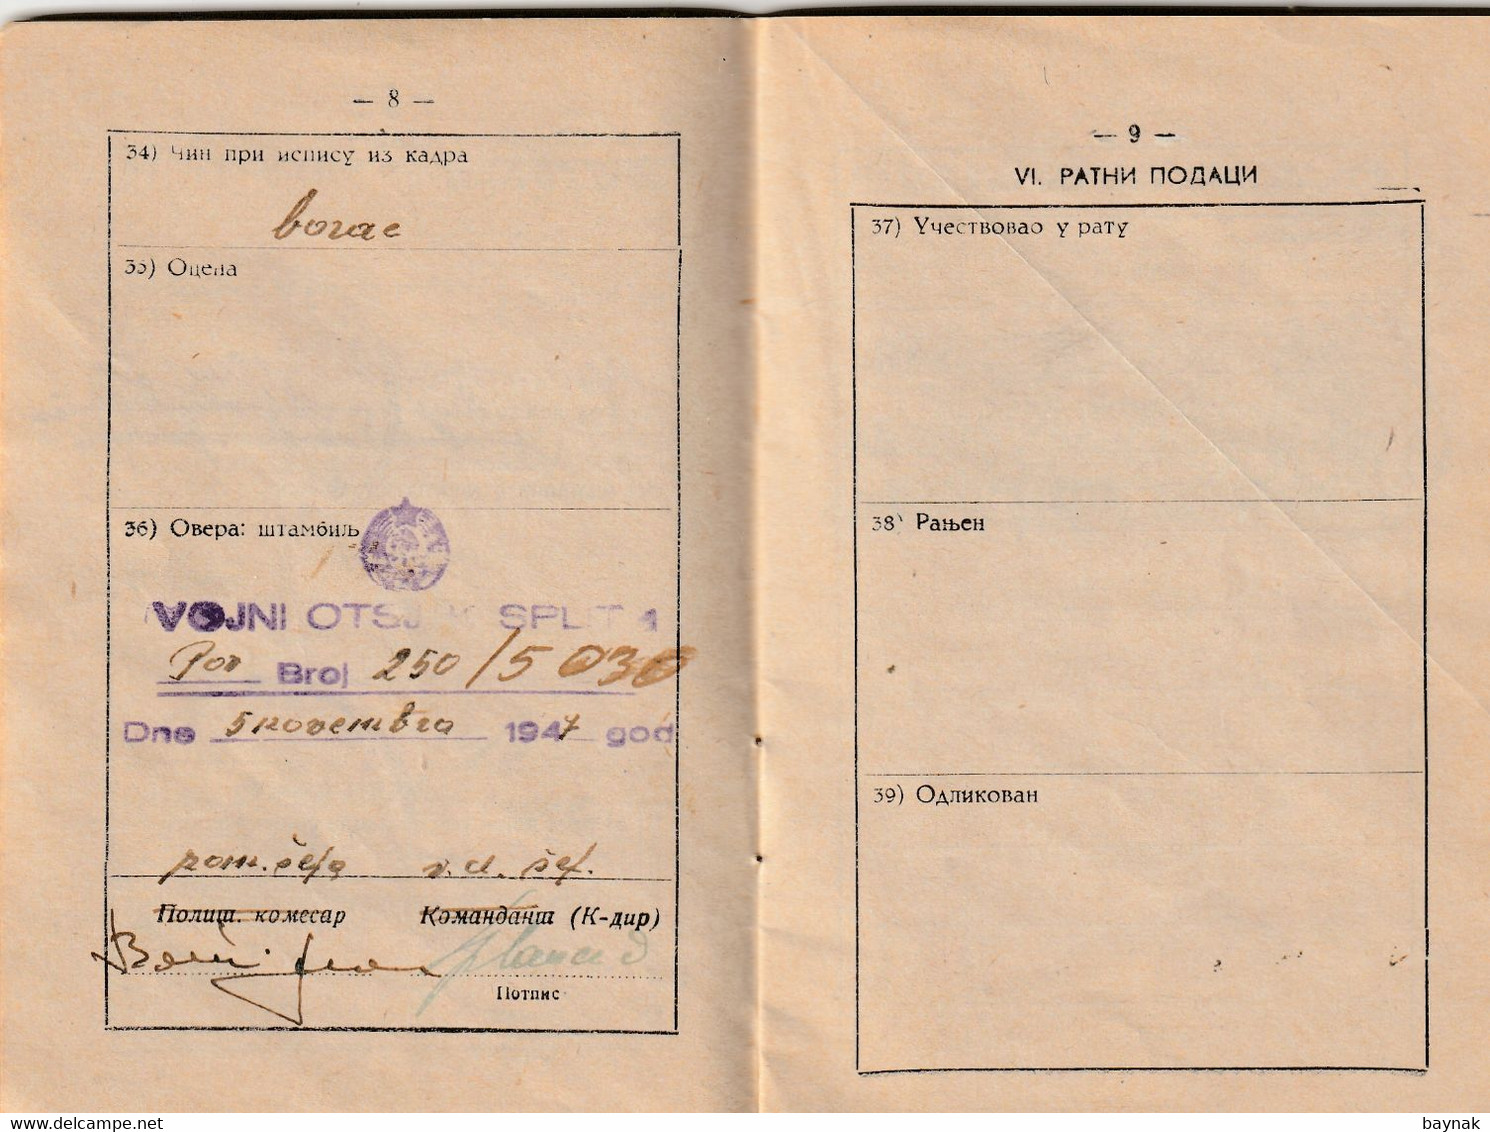 — 8 —
34) Чин при испису из кадра
borac
35) Оцена
36) Овера: штамбиљ
VOJNI OTSJEK SPLIT 1
Pov Broj 250/5030
Dne 5 novembra 1947 god
pom. šefa v.d. šef.
Полит. комесар Командант (К-дир)
Потпис
— 9 —
VI. РАТНИ ПОДАЦИ
37) Учествовао у рату
38) Рањен
39) Одликован
www.delcampe.net
baynak